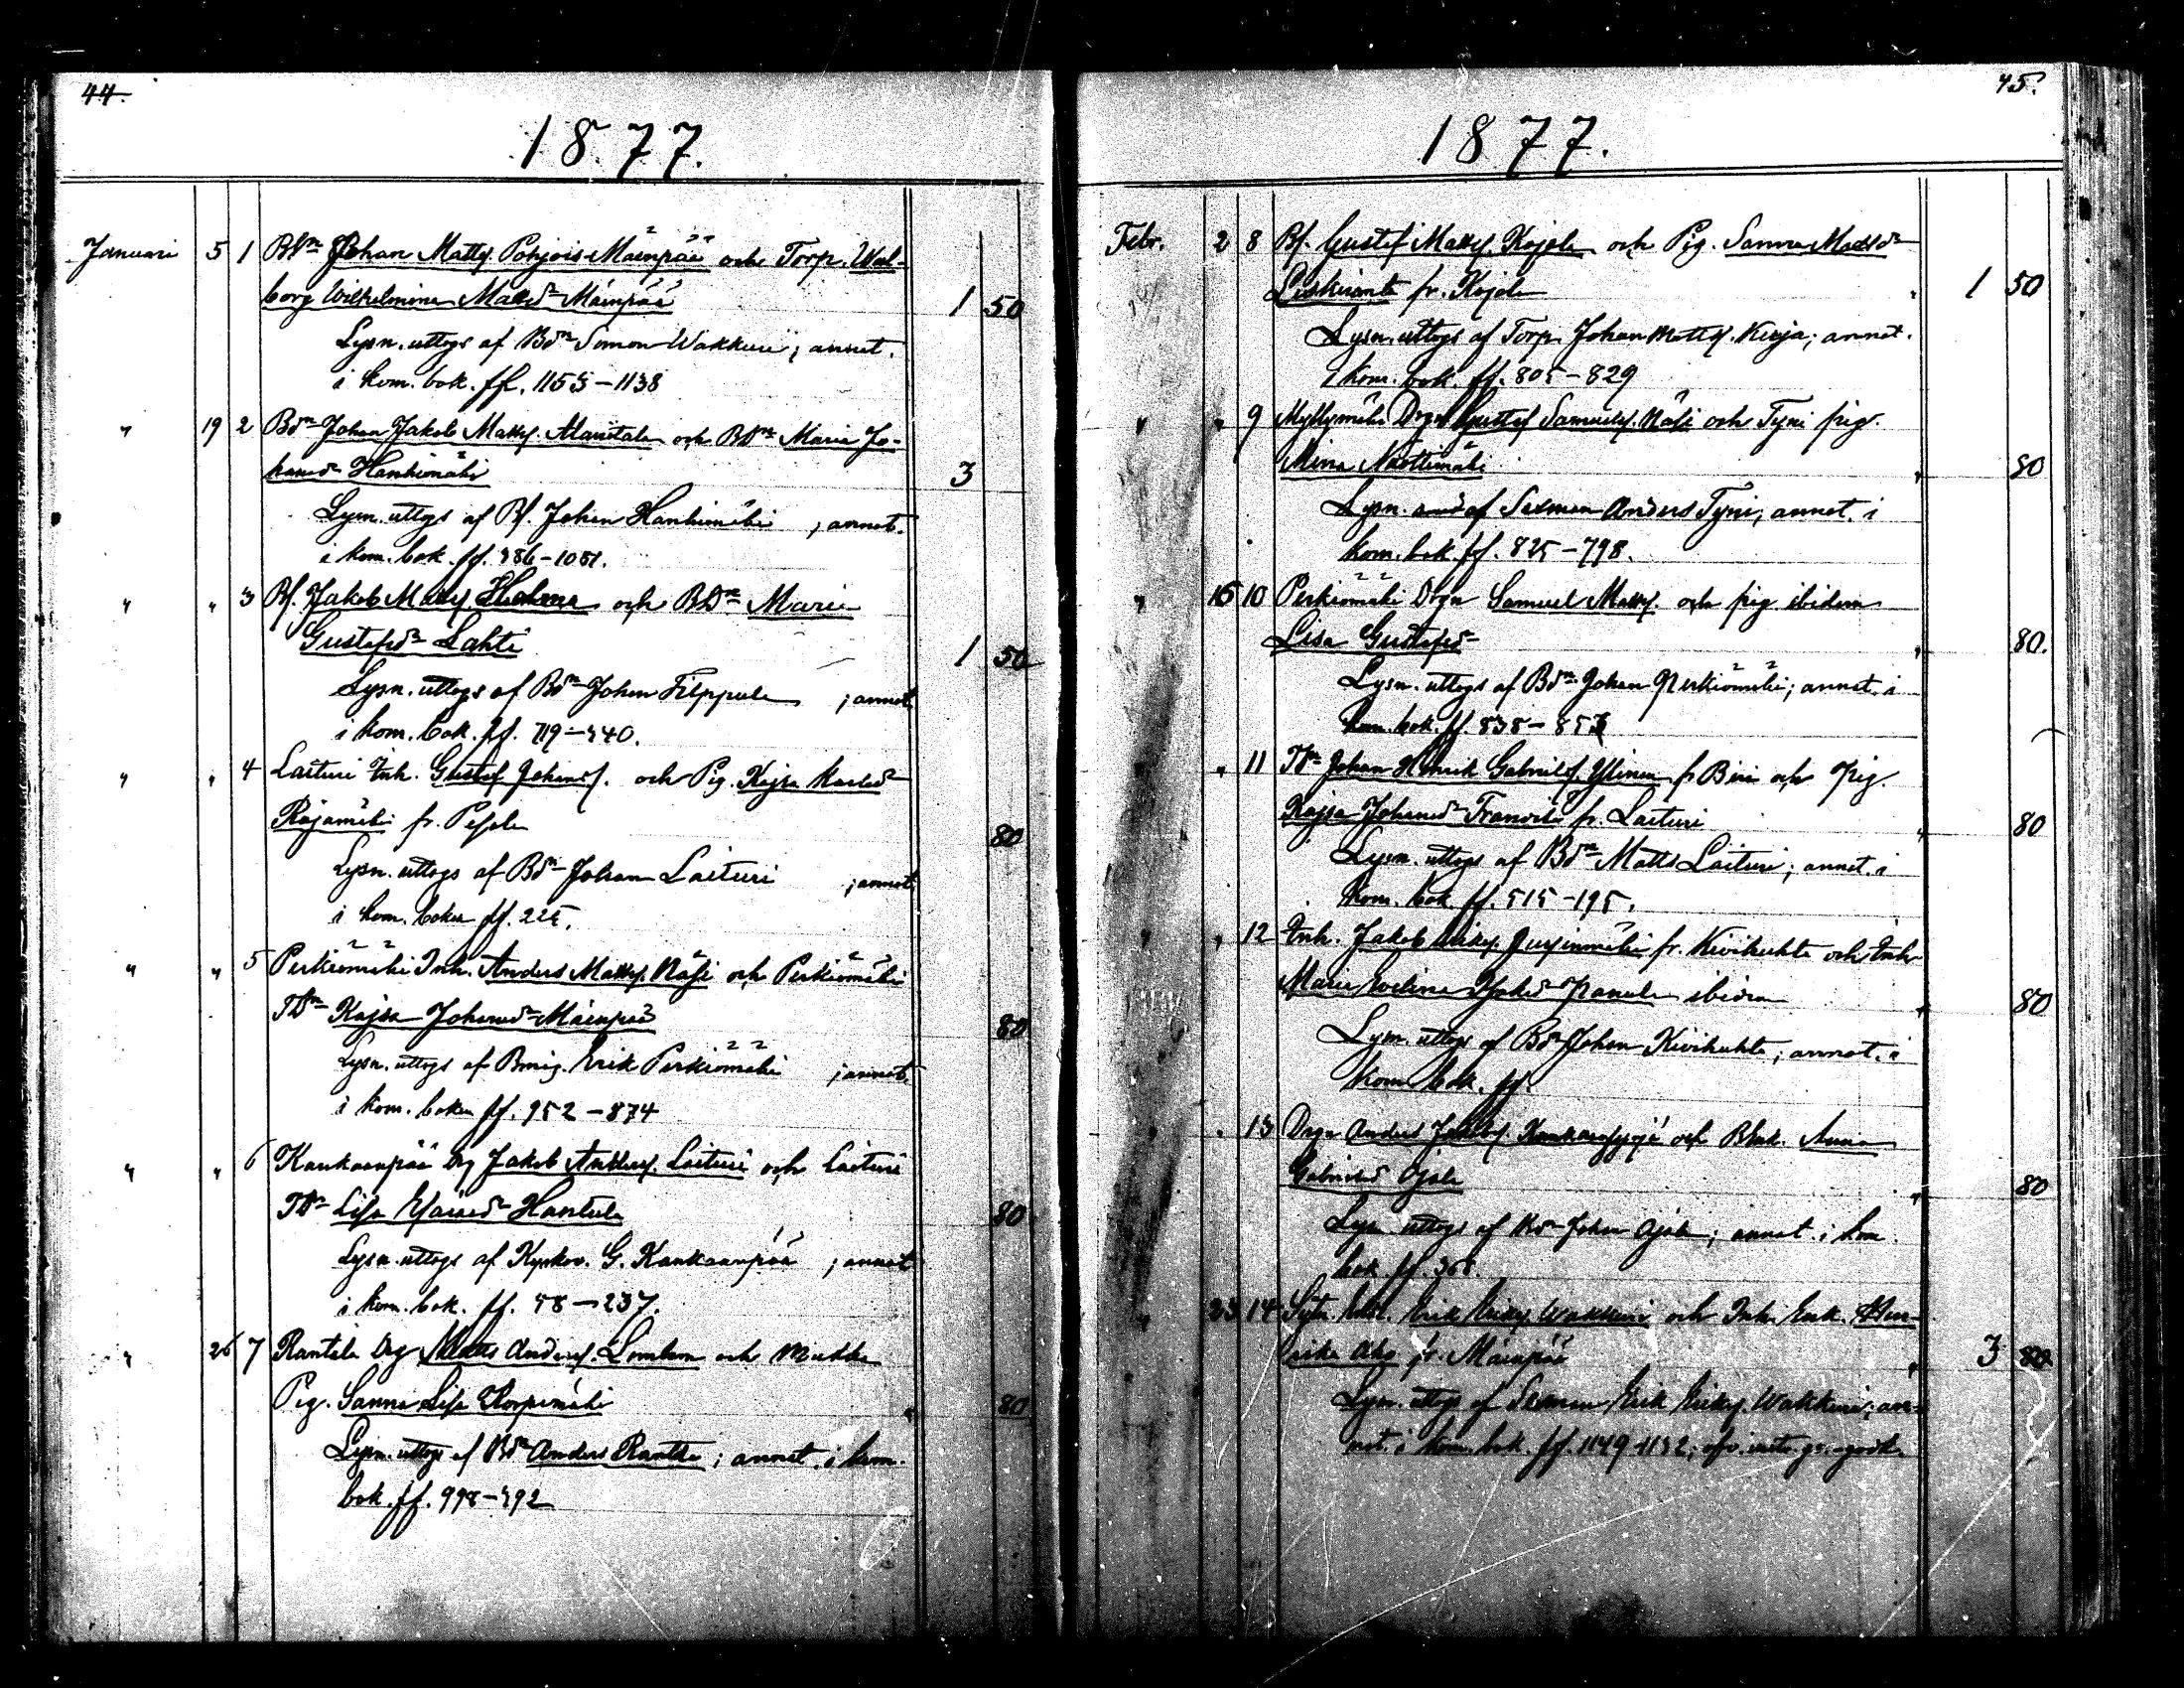 44.
1877.
Januari 5 1 Bdn Johan Matts. Pohjois-Mäenpää och Torp. Wal-
borg Wilhelmina Mattsdr Mäenpää 1 50
Lysn. uttogs af Bdn Simon Wakkuri; annot.
i kom. bok. ff. 1155-1138
" 19 2 Bdn Johan Jakob Matts. Alantalo och Bdr Maria Jo-
hansdr Hankimäki 3
Lysn. uttogs af Bs. Johan Hankimäki ; annot.
i kom. bok. ff. 486-1051.
" " 3 Bs. Jakob Matts. Holma och Bdr Maria
Gustafsdr Lahti 1 50
Lysn. uttogs af Bdn Johan Filppula ; annot
i kom. bok. ff. 719-440.
" " 4 Laituri Inh. Gustaf Johans. och Pig. Kajsa Karlsdr
Rajamäki fr. Pesola 80
Lysn. uttogs af Bdn Johan Laituri ; annot
i kom. boken ff. 225.
" " 5 Perkiömäki Inh. Anders Matts. Näsi och Perkiömäki
Tdr Kajsa Johansdr Mäenpää 80
Lysn. uttogs af Bmäg. Erik Perkiömäki ; annot.
i kom. boken ff. 952-874
" " 6 Kankaanpää Dg Jakob Anders. Laituri och Laituri
Tdr Lisa Esaiasdr Hantula 80
Lysn. uttogs af Kyrkov. G. Kankaanpää ; annot
i kom. bok. ff. 58-237.
" 26 7 Rantala Dg Matts Anders. Lomlom och Mukka
Pig. Sanna Lisa Korpimäki 80
Lysn. uttogs af Bdn Anders Rantala; annot. i kom.
bok. ff. 998-492
45.
1877.
Febr. 2 8 Bs. Gustaf Matts. Kojola och Pig. Sanna Mattsdr
fr. Kojola 1 50
Lysn. uttogs af Torp. Johan Matts. Kinja; annot.
i kom. bok. ff. 805-829
" " 9 Myllymäki Drgn Gustaf Samuels. Näsi och Tyni pig.
Mina Niottimäki 80
Lysn. af Sexman Anders Tyni, annot. i
kom. bok. ff. 825-798.
" 16 10 Perkiömäki Drgn Samuel Matts. och pig ibidem
Lisa Gustafsdr 80.
Lysn. uttogs af Bdn Johan Perkiömäki; annot. i
kom. bok. ff. 838-853
" " 11 Tdn Johan Henrik Gabriels. Ylinen fr Biri och Pig.
Kajsa Johansdr fr. Laituri 80
Lysn. uttogs af Bdn Matts Laituri; annot. i
kom. bok. ff. 515-195.
" " 12 Inh. Jakob Eriks. fr. Kivihuhta och Inh.
Maria Evelina ibidem 80
Lysn. uttogs af Bdn Johan Kivihuhta; annot. i
kom. bok. ff.
" " 13 Drgn Anders och Anna
Gabrielsdr Ojala 80
Lysn. uttogs af Bdn Johan Ojala; annot. i kom.
bok. ff. 368.
" 23 14 Erik Eriks. Wakkuri och Inh. Enk. Hen-
rika Aho fr. Mäenpää 3 80
Lysn. uttogs af Sexman Erik Eriks. Wakkuri; an-
not. i kom. bok. ff. 1149-1132;